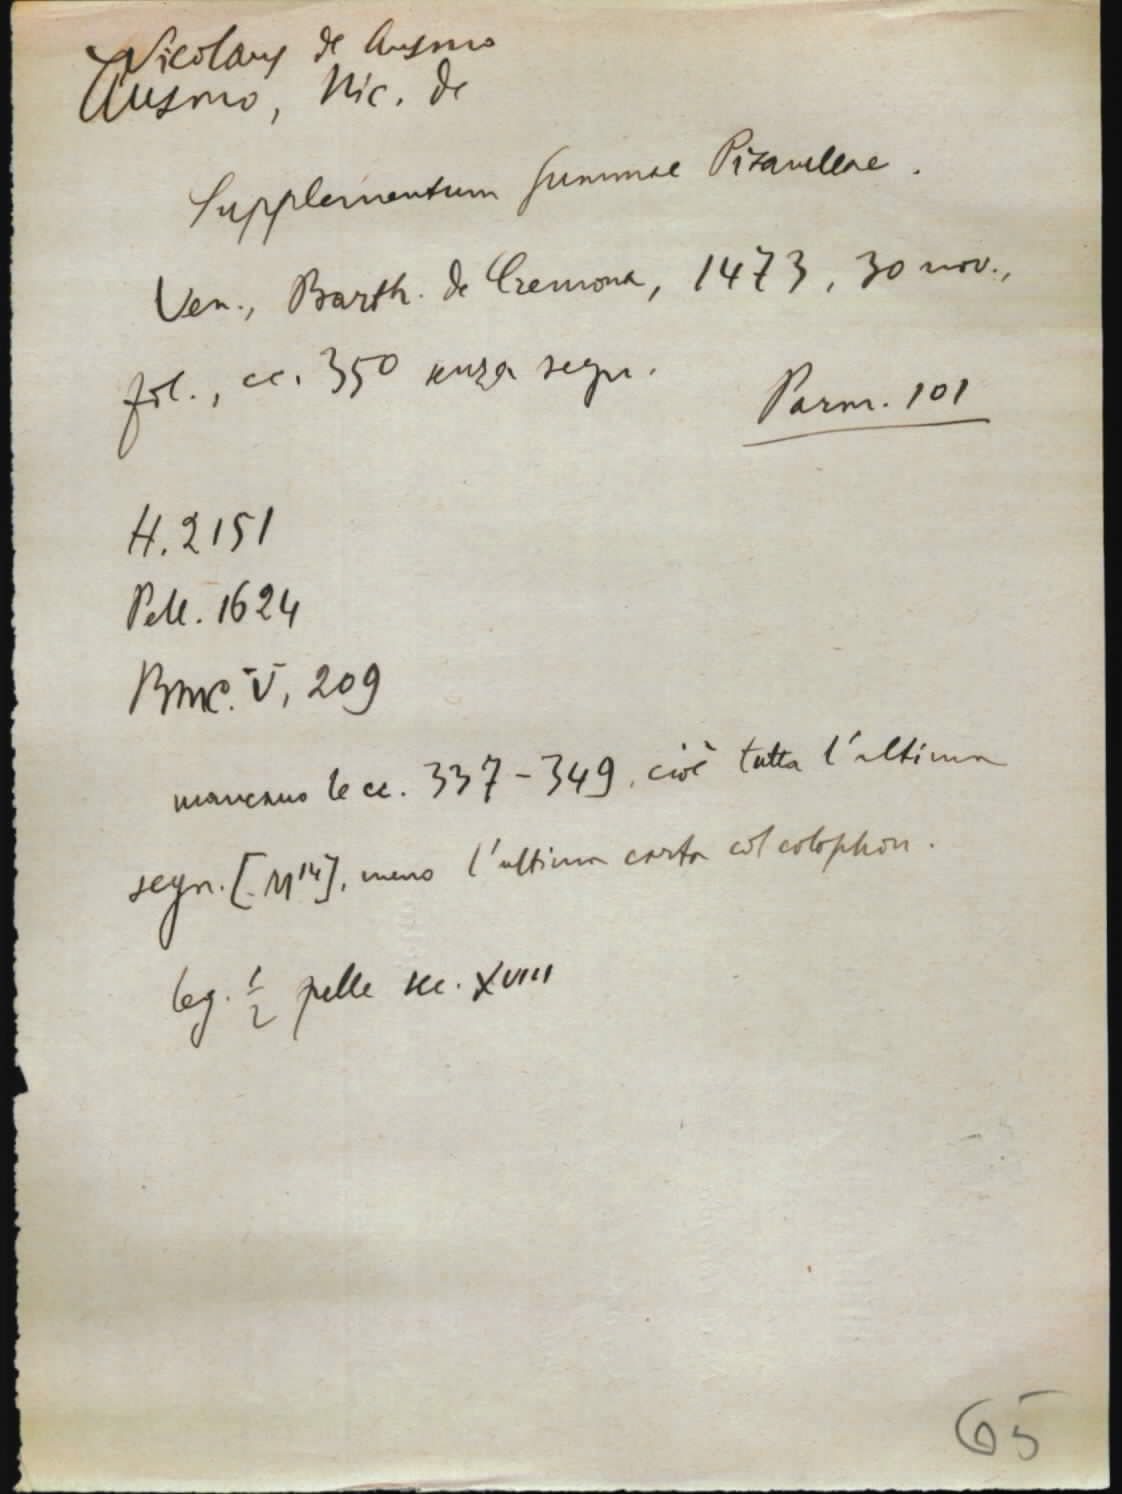 Nicolaus de Ausmo
Ausmo, Nic. de
Supplementum Summae Pisanellae.
Ven., Barth. de Cremona, 1473, 30 nov.,
fol., cc. 350 senza segn.
Parm. 101
H. 2151
Pell. 1624
BMC. V, 209
mancano le cc. 337-349, cioè tutta l'ultima
segn. [M¹⁴], meno l'ultima carta col colophon.
leg. ½ pelle sec. XVIII
65